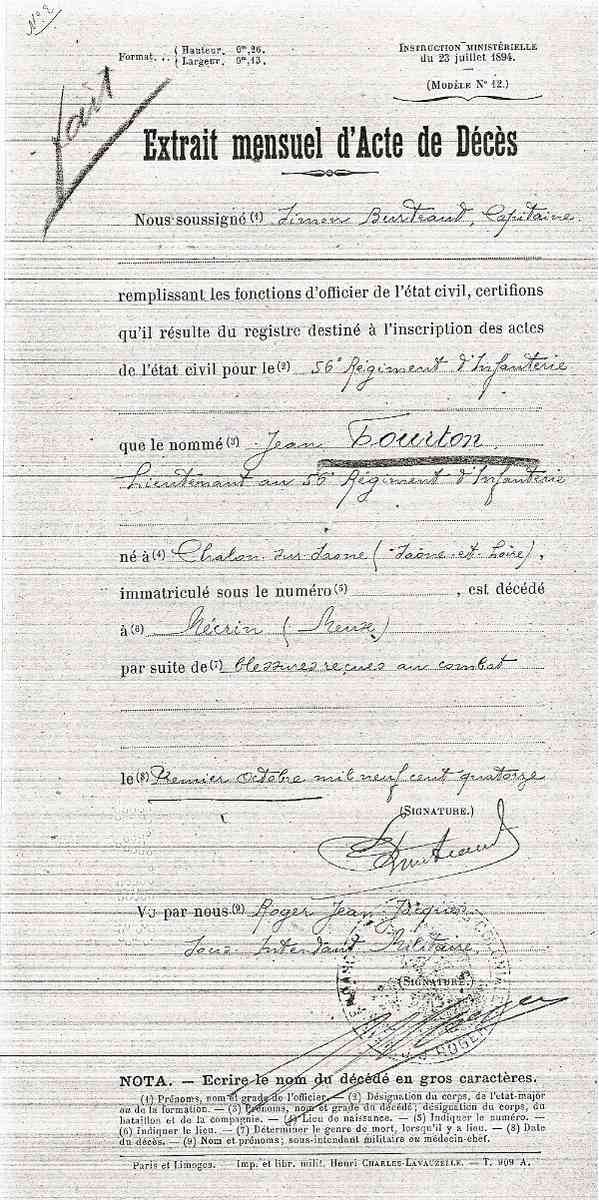 N° 2
fait
Format... { Hauteur. 0m,26.
Largeur. 0m,13.
INSTRUCTION MINISTÉRIELLE
du 23 juillet 1894.
(MODÈLE N° 12.)
Extrait mensuel d'Acte de Décès
Nous soussigné (1) Simon Burteaud, Capitaine.
remplissant les fonctions d'officier de l'état civil, certifions
qu'il résulte du registre destiné à l'inscription des actes
de l'état civil pour le (2) 56e Régiment d'Infanterie
que le nommé (3) Jean Tourton
Lieutenant au 56e Régiment d'Infanterie
né à (4) Chalon-sur-Saone (Saône-et-Loire),
immatriculé sous le numéro (5) , est décédé
à (6) Mécrin (Meuse)
par suite de (7) blessures reçues au combat
le (8) Premier octobre mil neuf cent quatorze
(SIGNATURE.)
Burteaud
Vu par nous (9) Roger Jean
Sous Intendant Militaire
(SIGNATURE.)
ROGER
NOTA. — Ecrire le nom du décédé en gros caractères.
(1) Prénoms, nom et grade de l'officier. — (2) Désignation du corps, de l'état-major
ou de la formation. — (3) Prénoms, nom et grade du décédé; désignation du corps, du
bataillon et de la compagnie. — (4) Lieu de naissance. — (5) Indiquer le numéro. —
(6) Indiquer le lieu. — (7) Déterminer le genre de mort, lorsqu'il y a lieu. — (8) Date
du décès. — (9) Nom et prénoms; sous-intendant militaire ou médecin-chef.
Paris et Limoges. — Imp. et libr. milit. Henri CHARLES-LAVAUZELLE. — T. 909 A.